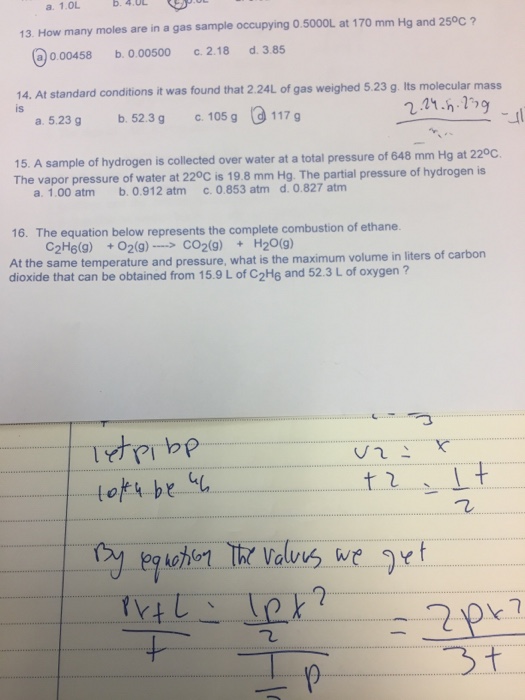 a. 1.0L b. 4.0L
13. How many moles are in a gas sample occupying 0.5000L at 170 mm Hg and 25ºC ?
a 0.00458 b. 0.00500 c. 2.18 d. 3.85
14. At standard conditions it was found that 2.24L of gas weighed 5.23 g. Its molecular mass
is
a. 5.23 g b. 52.3 g c. 105 g d 117 g
15. A sample of hydrogen is collected over water at a total pressure of 648 mm Hg at 22ºC.
The vapor pressure of water at 22ºC is 19.8 mm Hg. The partial pressure of hydrogen is
a. 1.00 atm b. 0.912 atm c. 0.853 atm d. 0.827 atm
16. The equation below represents the complete combustion of ethane.
C2H6(g) + O2(g) ----> CO2(g) + H2O(g)
At the same temperature and pressure, what is the maximum volume in liters of carbon
dioxide that can be obtained from 15.9 L of C2H6 and 52.3 L of oxygen ?
let p1 bp
v2 = x
be
t2 = 1/2 t
By equation The values we get
= 2px²/3t